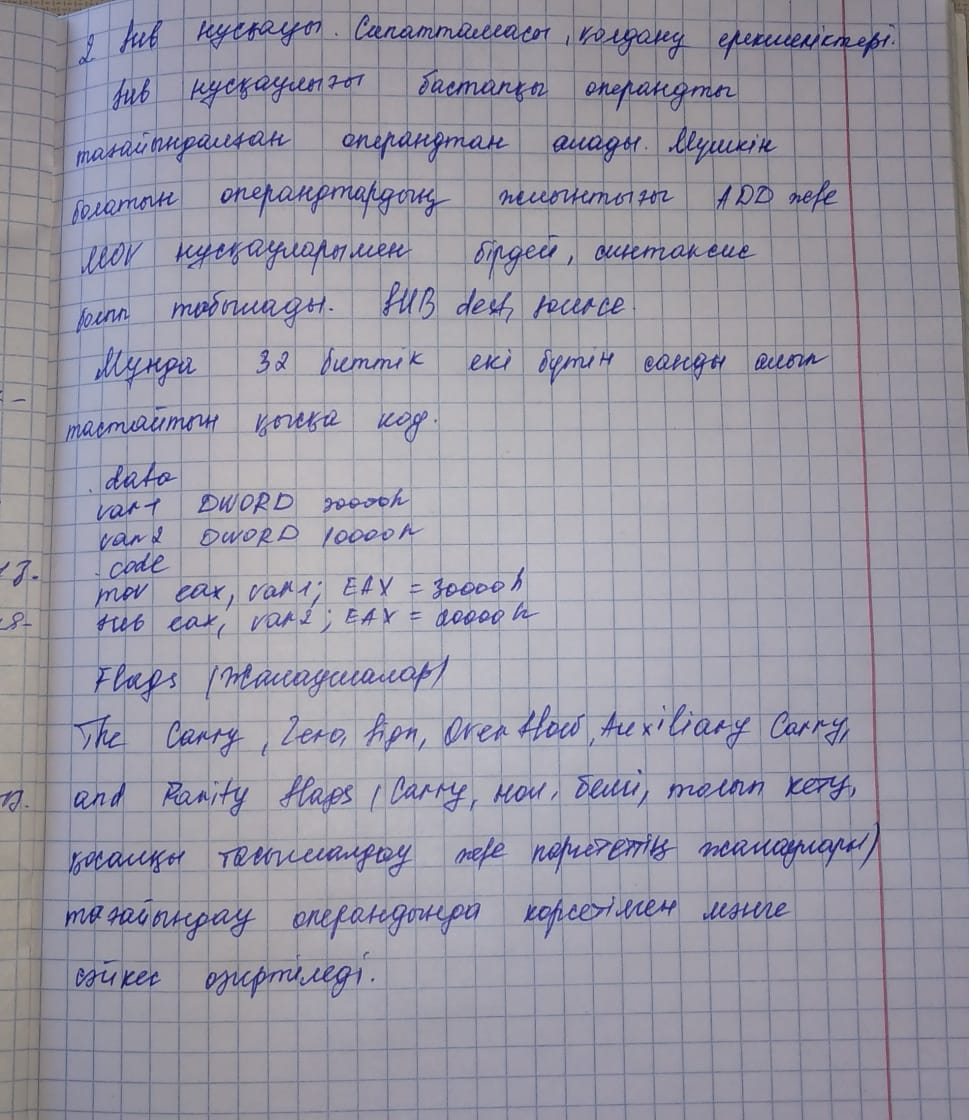 2 Sub нусқауы. Сипаттамасы, қолдану ерекшеліктері.
Sub нусқаулығы бастапқы операндты
тағайындалған операндтан алады. Мүшкін
болатын операндтардың жиынтығы ADD және
MOV нусқауларымен бірдей, синтаксис
болып табылады. SUB dest, source.
Мұнда 32 биттік екі бүтін санды алып
тастайтын қысқа код.
.data
var1 DWORD 30000h
var2 DWORD 10000h
.code
mov eax, var1; EAX = 30000h
sub eax, var2; EAX = 20000h
Flags (Жалаушалар)
The Carry, Zero, Sign, Overflow, Auxiliary Carry,
and Parity flags (Carry, нөл, белгі, толып кету,
қосалқы тасымалдау және паритеттің жалаулары)
тағайындау операндында көрсетілген мәнге
сәйкес өзгертіледі.